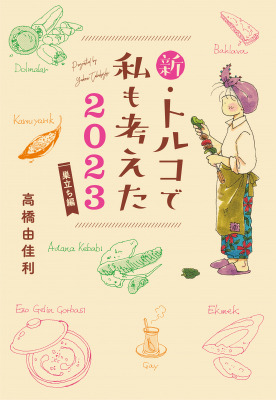 Dolmalar
Presented by
Yukari Takahashi
Baklava
新・トルコで
私も考えた
2023
巣立ち編
高橋由佳利
Karnıyarık
Adana Kebabı
Ezo Gelin Çorbası
Çay
Ekmek